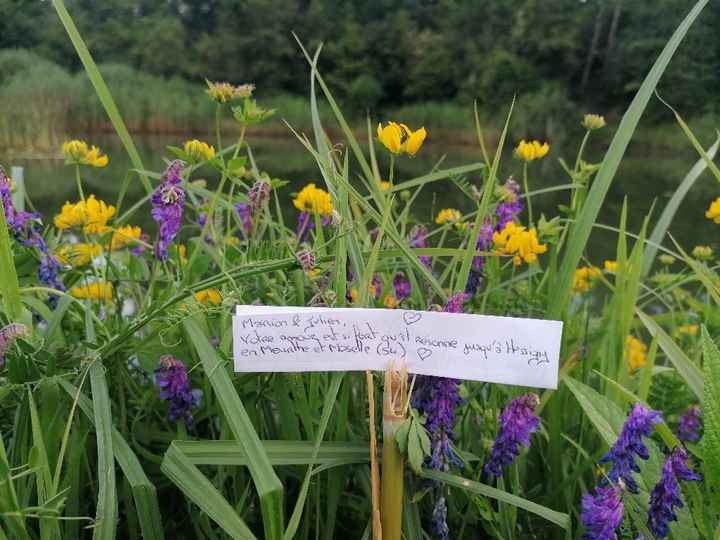 Marion & Julien,
Votre amour est si fort qu'il résonne jusqu'à Messigny
en Meurthe et Moselle (54)